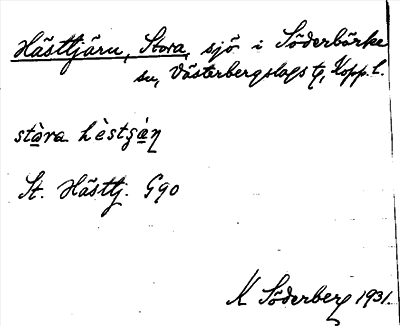 Hästtjärn, Stora, sjö i Söderbärke
sn, Västerbergslags tg, Kopp. l.
stàra hèstʒán
St. Hästtj. G90
K Söderberg 1931.